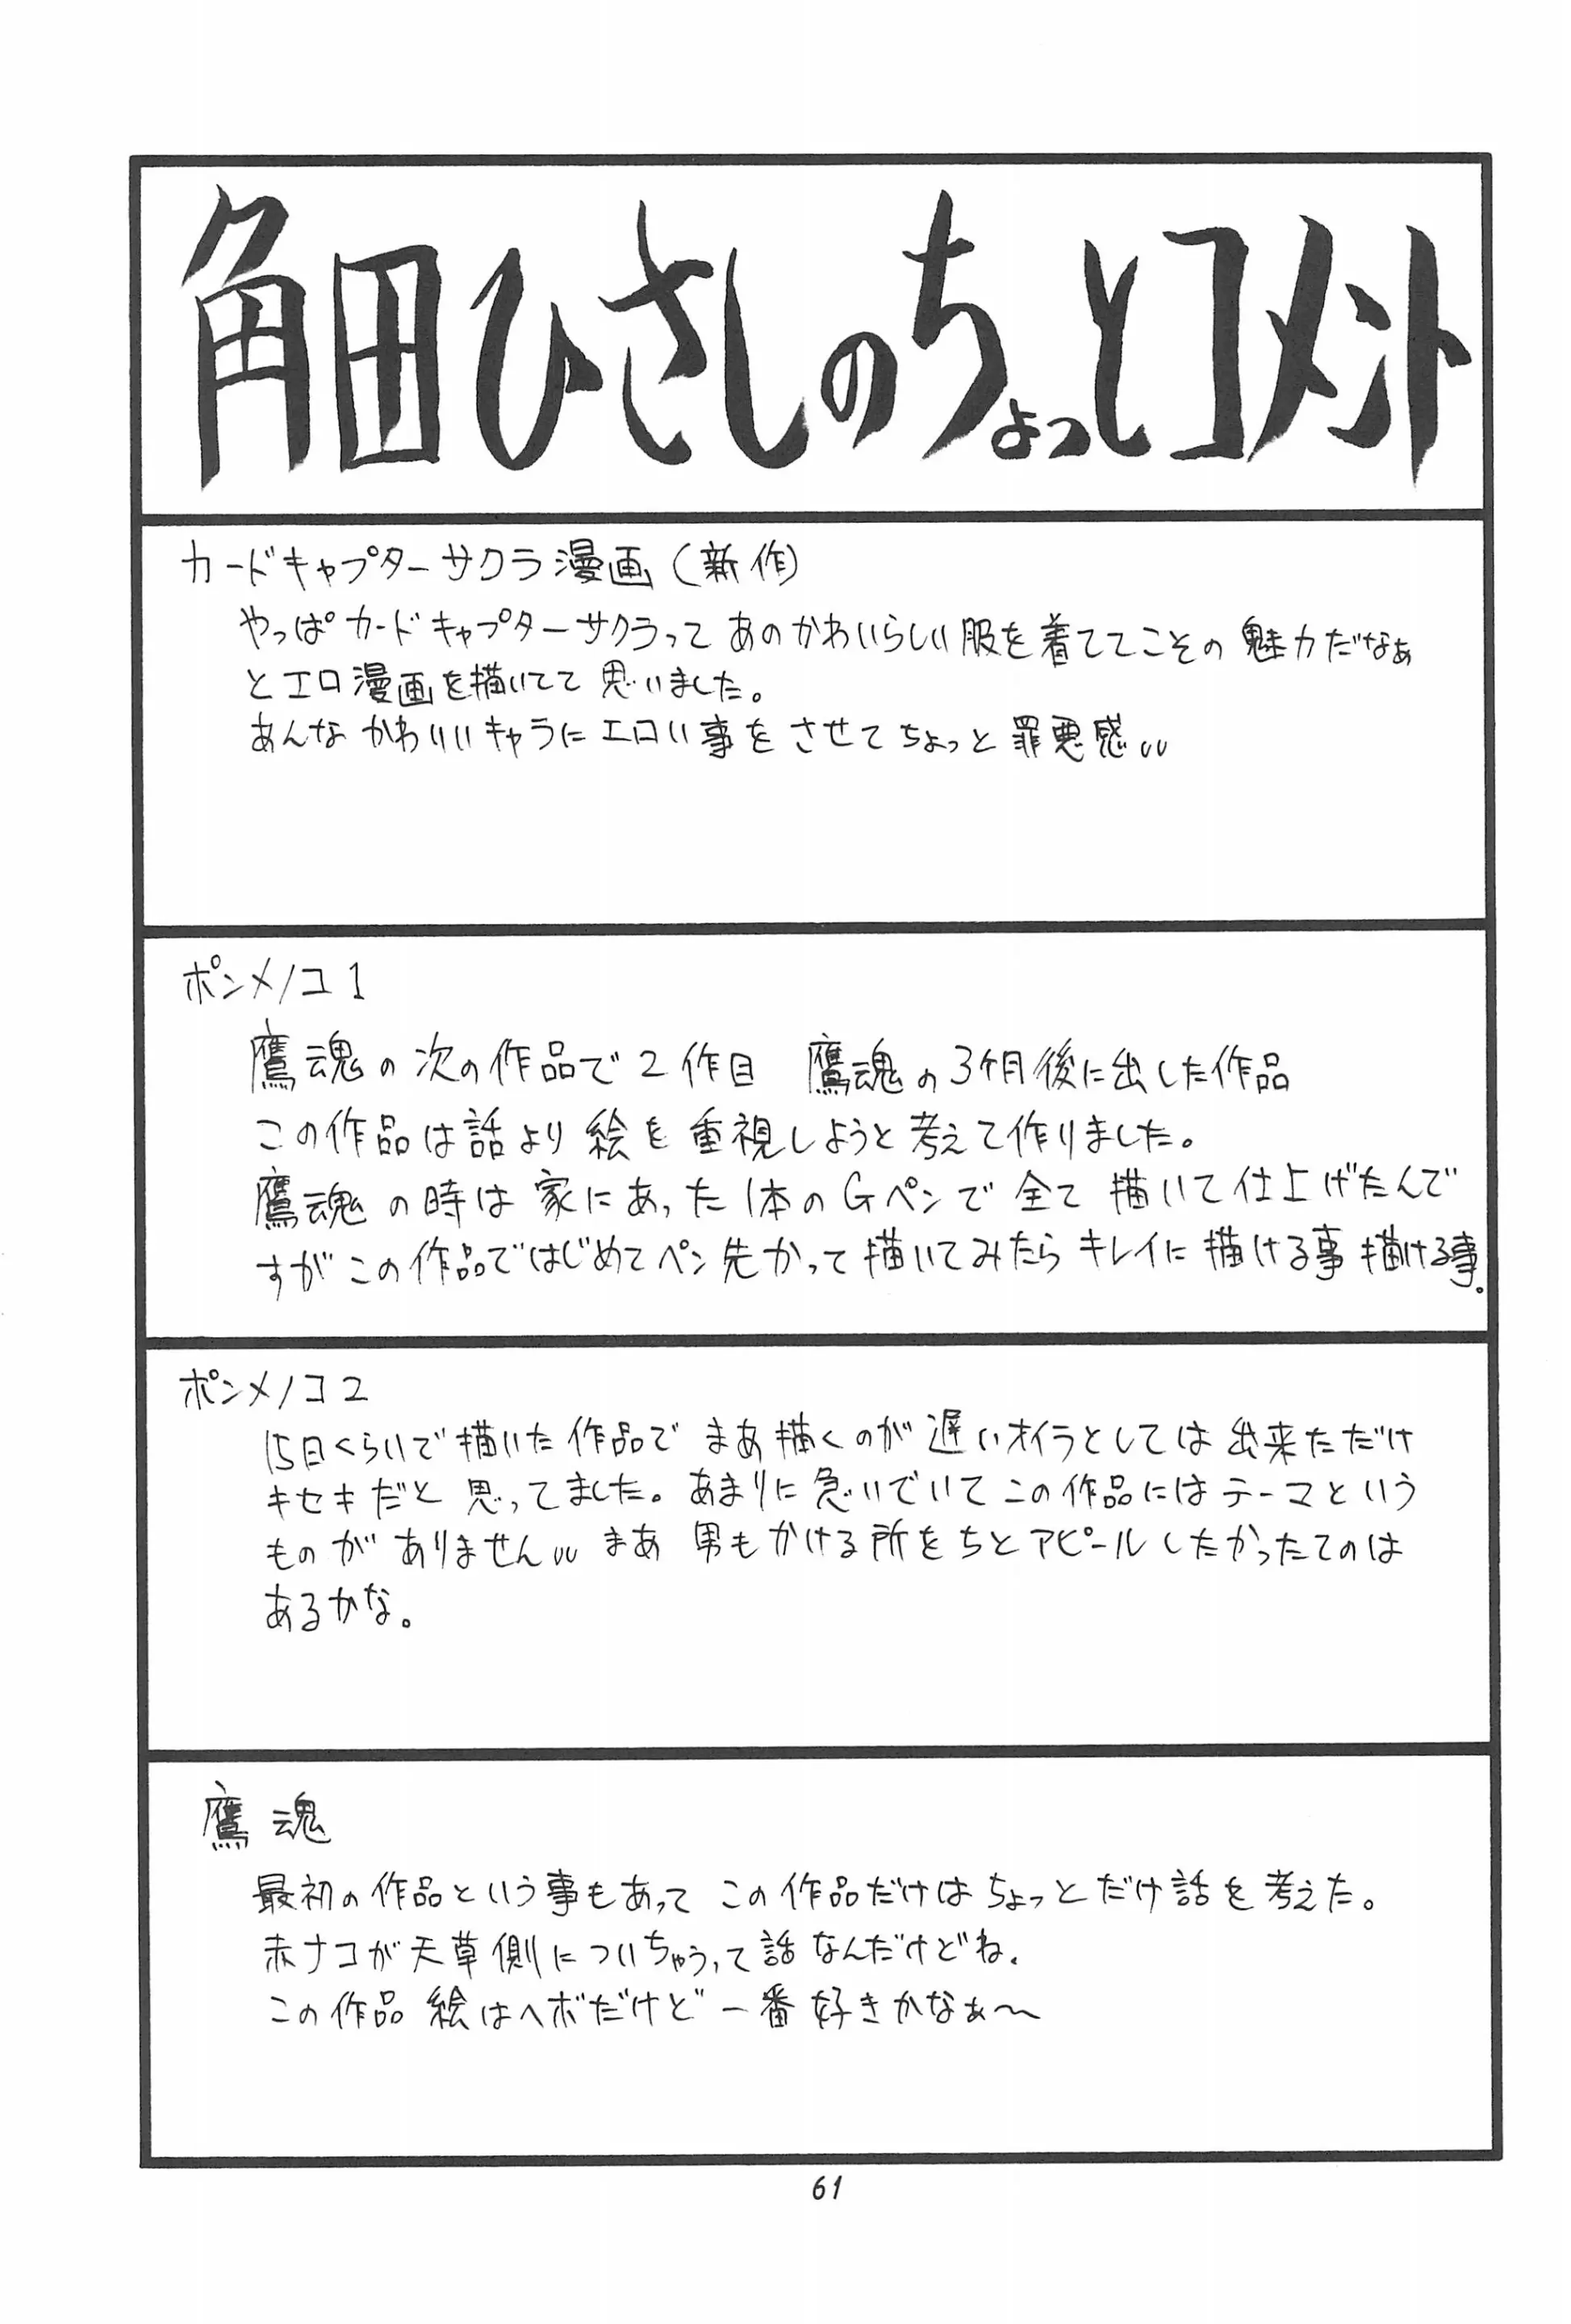 角田ひさしのちょっとコメント
カードキャプターサクラ漫画(新作)
やっぱカードキャプターサクラってあのかわいらしい服を着ててこその魅力だなぁ
とエロ漫画を描いてて思いました。
あんなかわいいキャラにエロい事をさせてちょっと罪悪感
ポンメノコ1
鷹魂の次の作品で2作目 鷹魂の3ケ月後に出した作品
この作品は話より絵を重視しようと考えて作りました。
鷹魂の時は家にあった1本のGペンで全て描いて仕上げたんで
すがこの作品ではじめてペン先かって描いてみたらキレイに描ける事描ける事。
ポンメノコ2
15日くらいで描いた作品でまあ描くのが遅いオイラとしては出来ただけ
キセキだと思ってました。あまりに急いでいてこの作品にはテーマという
ものがありません まあ男もかける所をちとアピールしたかったてのは
あるかな。
鷹魂
最初の作品という事もあってこの作品だけはちょっとだけ話を考えた。
赤ナコが天草側についちゃうって話なんだけどね.
この作品絵はヘボだけど一番好きかなぁ〜
61